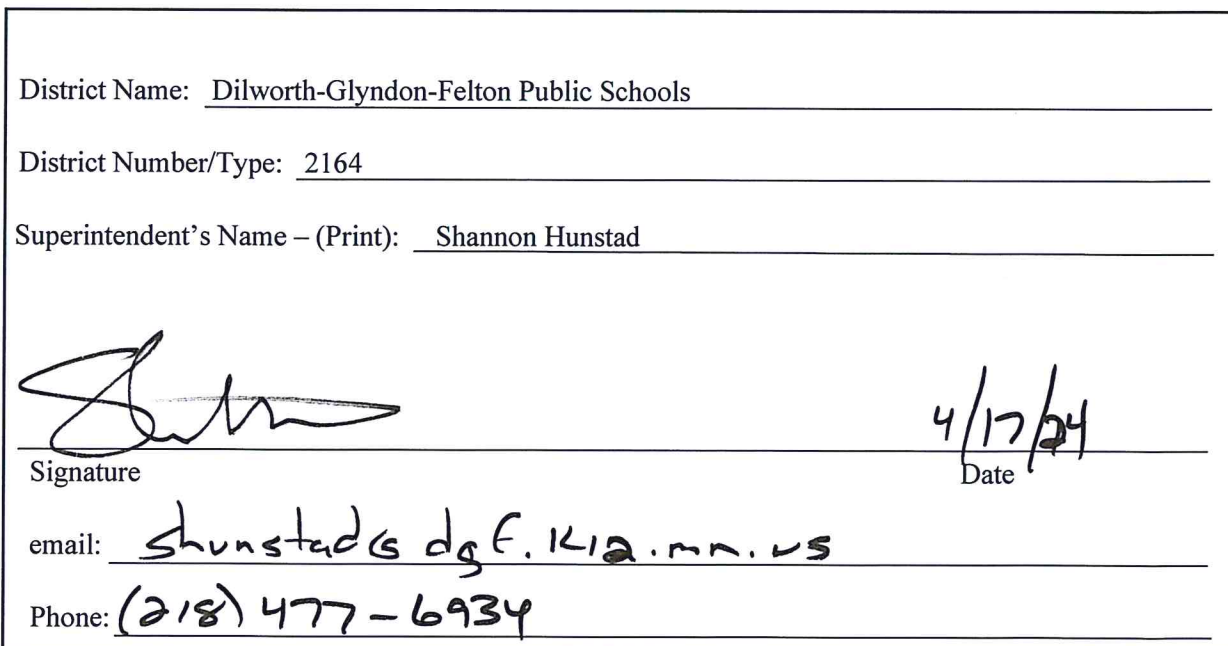 District Name: Dilworth-Glyndon-Felton Public Schools
District Number/Type: 2164
Superintendent's Name – (Print): Shannon Hunstad
4/17/24
Signature Date
email: shunstad@dgf.k12.mn.us
Phone: (218) 477-6934